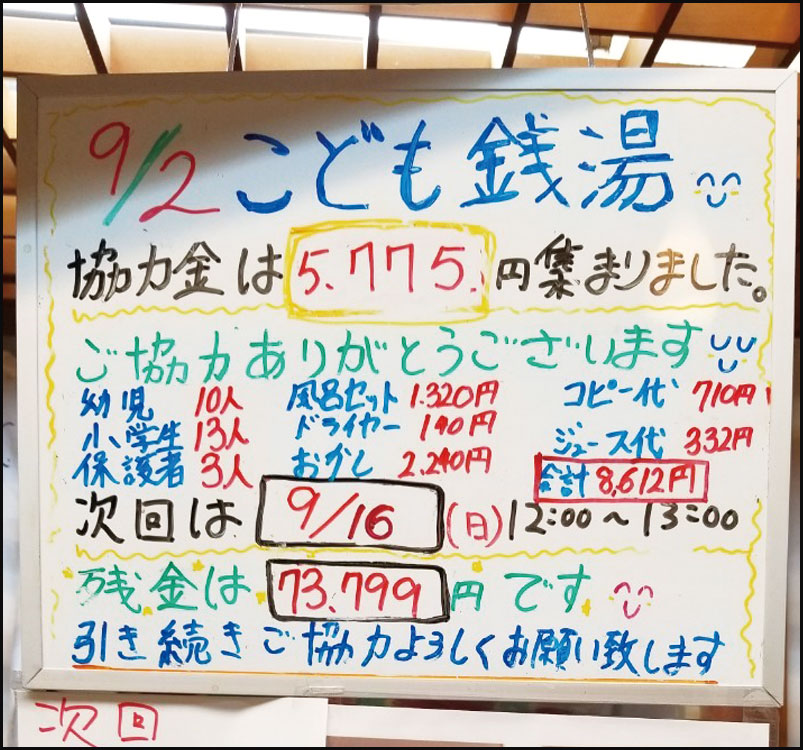 9/2 こども銭湯
協力金は 5.775. 円集まりました。
ご協力ありがとうございます
幼児 10人 風呂セット 1.320円 コピー代 710円
小学生 13人 ドライヤー 190円 ジュース代 332円
保護者 3人 おかし 2.240円 合計 8,612円
次回は 9/16 (日) 12:00〜13:00
残金は 73.799 円です
引き続きご協力よろしくお願い致します
次回